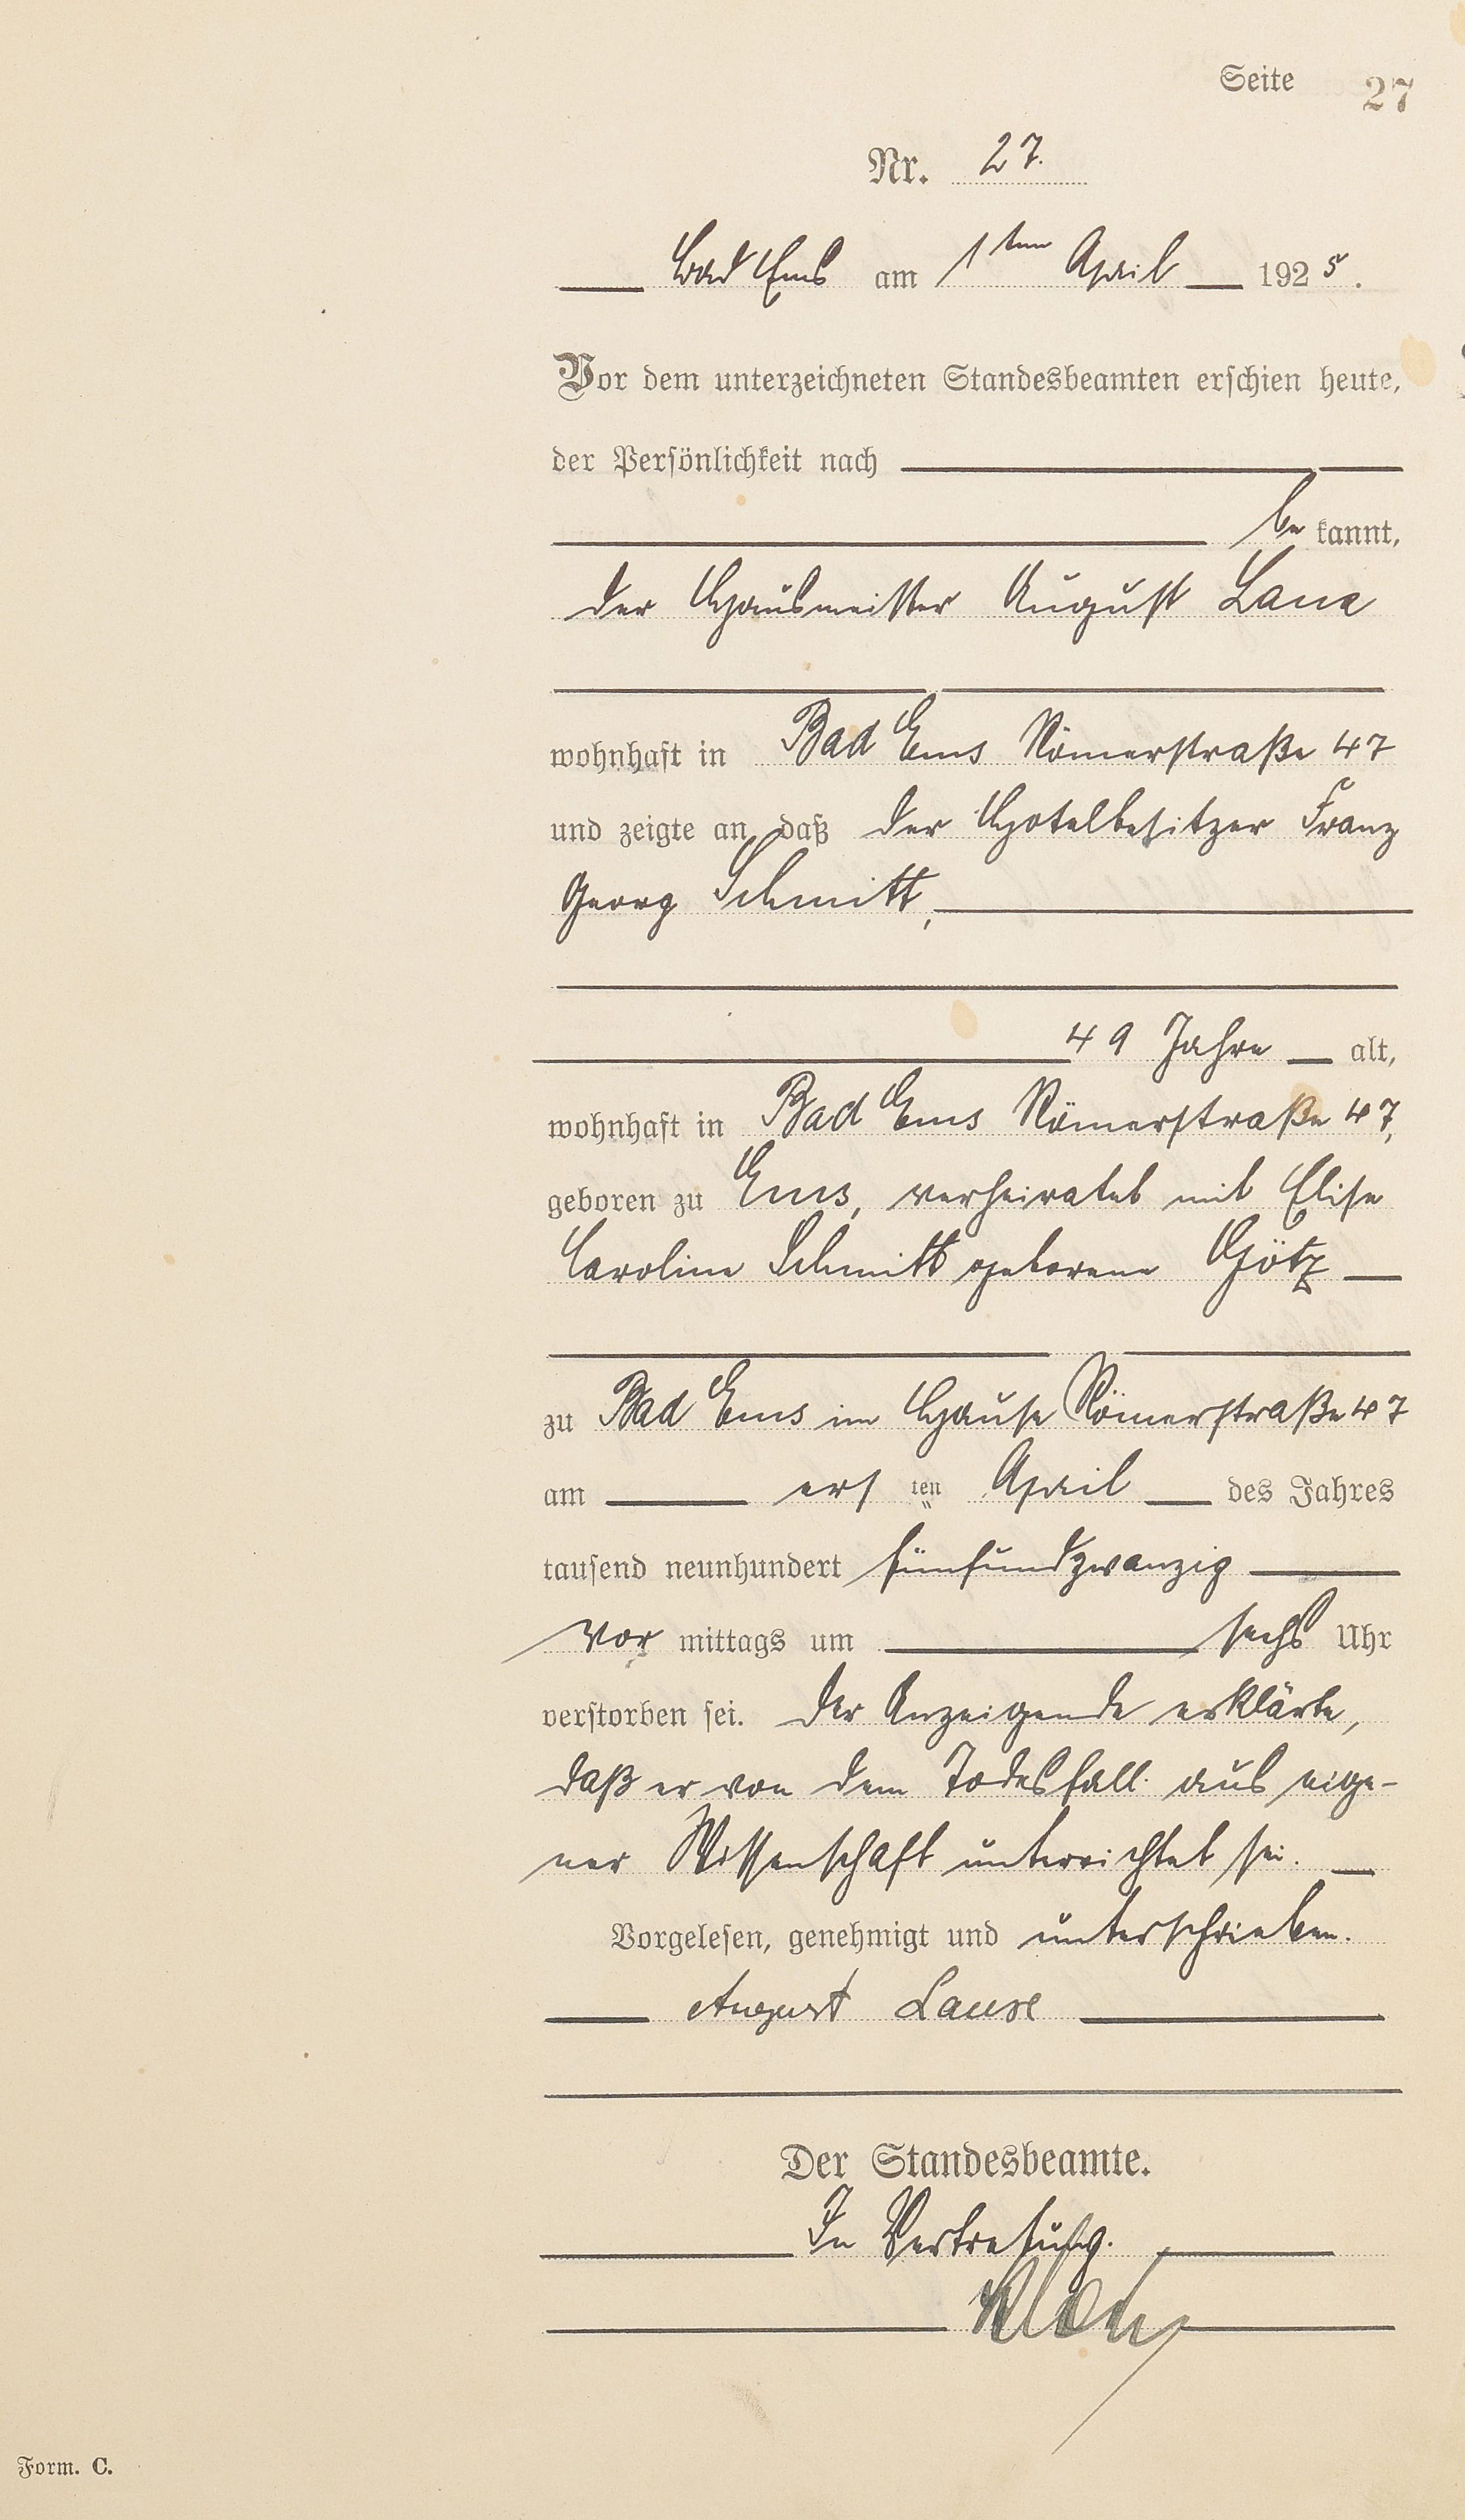 Seite 27
Nr. 27.
Bad Ems am 1ten April 1925.
Vor dem unterzeichneten Standesbeamten erschien heute,
der Persönlichkeit nach
be kannt,
der Hausmeister August
wohnhaft in Bad Ems Römerstraße 47
und zeigte an, daß der Hotelbesitzer Franz
Georg Schmitt,
49 Jahre alt,
wohnhaft in Bad Ems Römerstraße 47,
geboren zu Ems, verheiratet mit Elise
Caroline Schmitt geborene Götz
zu Bad Ems im Hause Römerstraße 47
am ers ten April des Jahres
tausend neunhundert fünfundzwanzig
Vor mittags um sechs Uhr
verstorben sei. Der Anzeigende erklärte,
daß er von dem Todesfall aus eige-
ner Wissenschaft unterrichtet sei.
Vorgelesen, genehmigt und unterschrieben.
August
Der Standesbeamte.
In Vertretung.
Form. C.